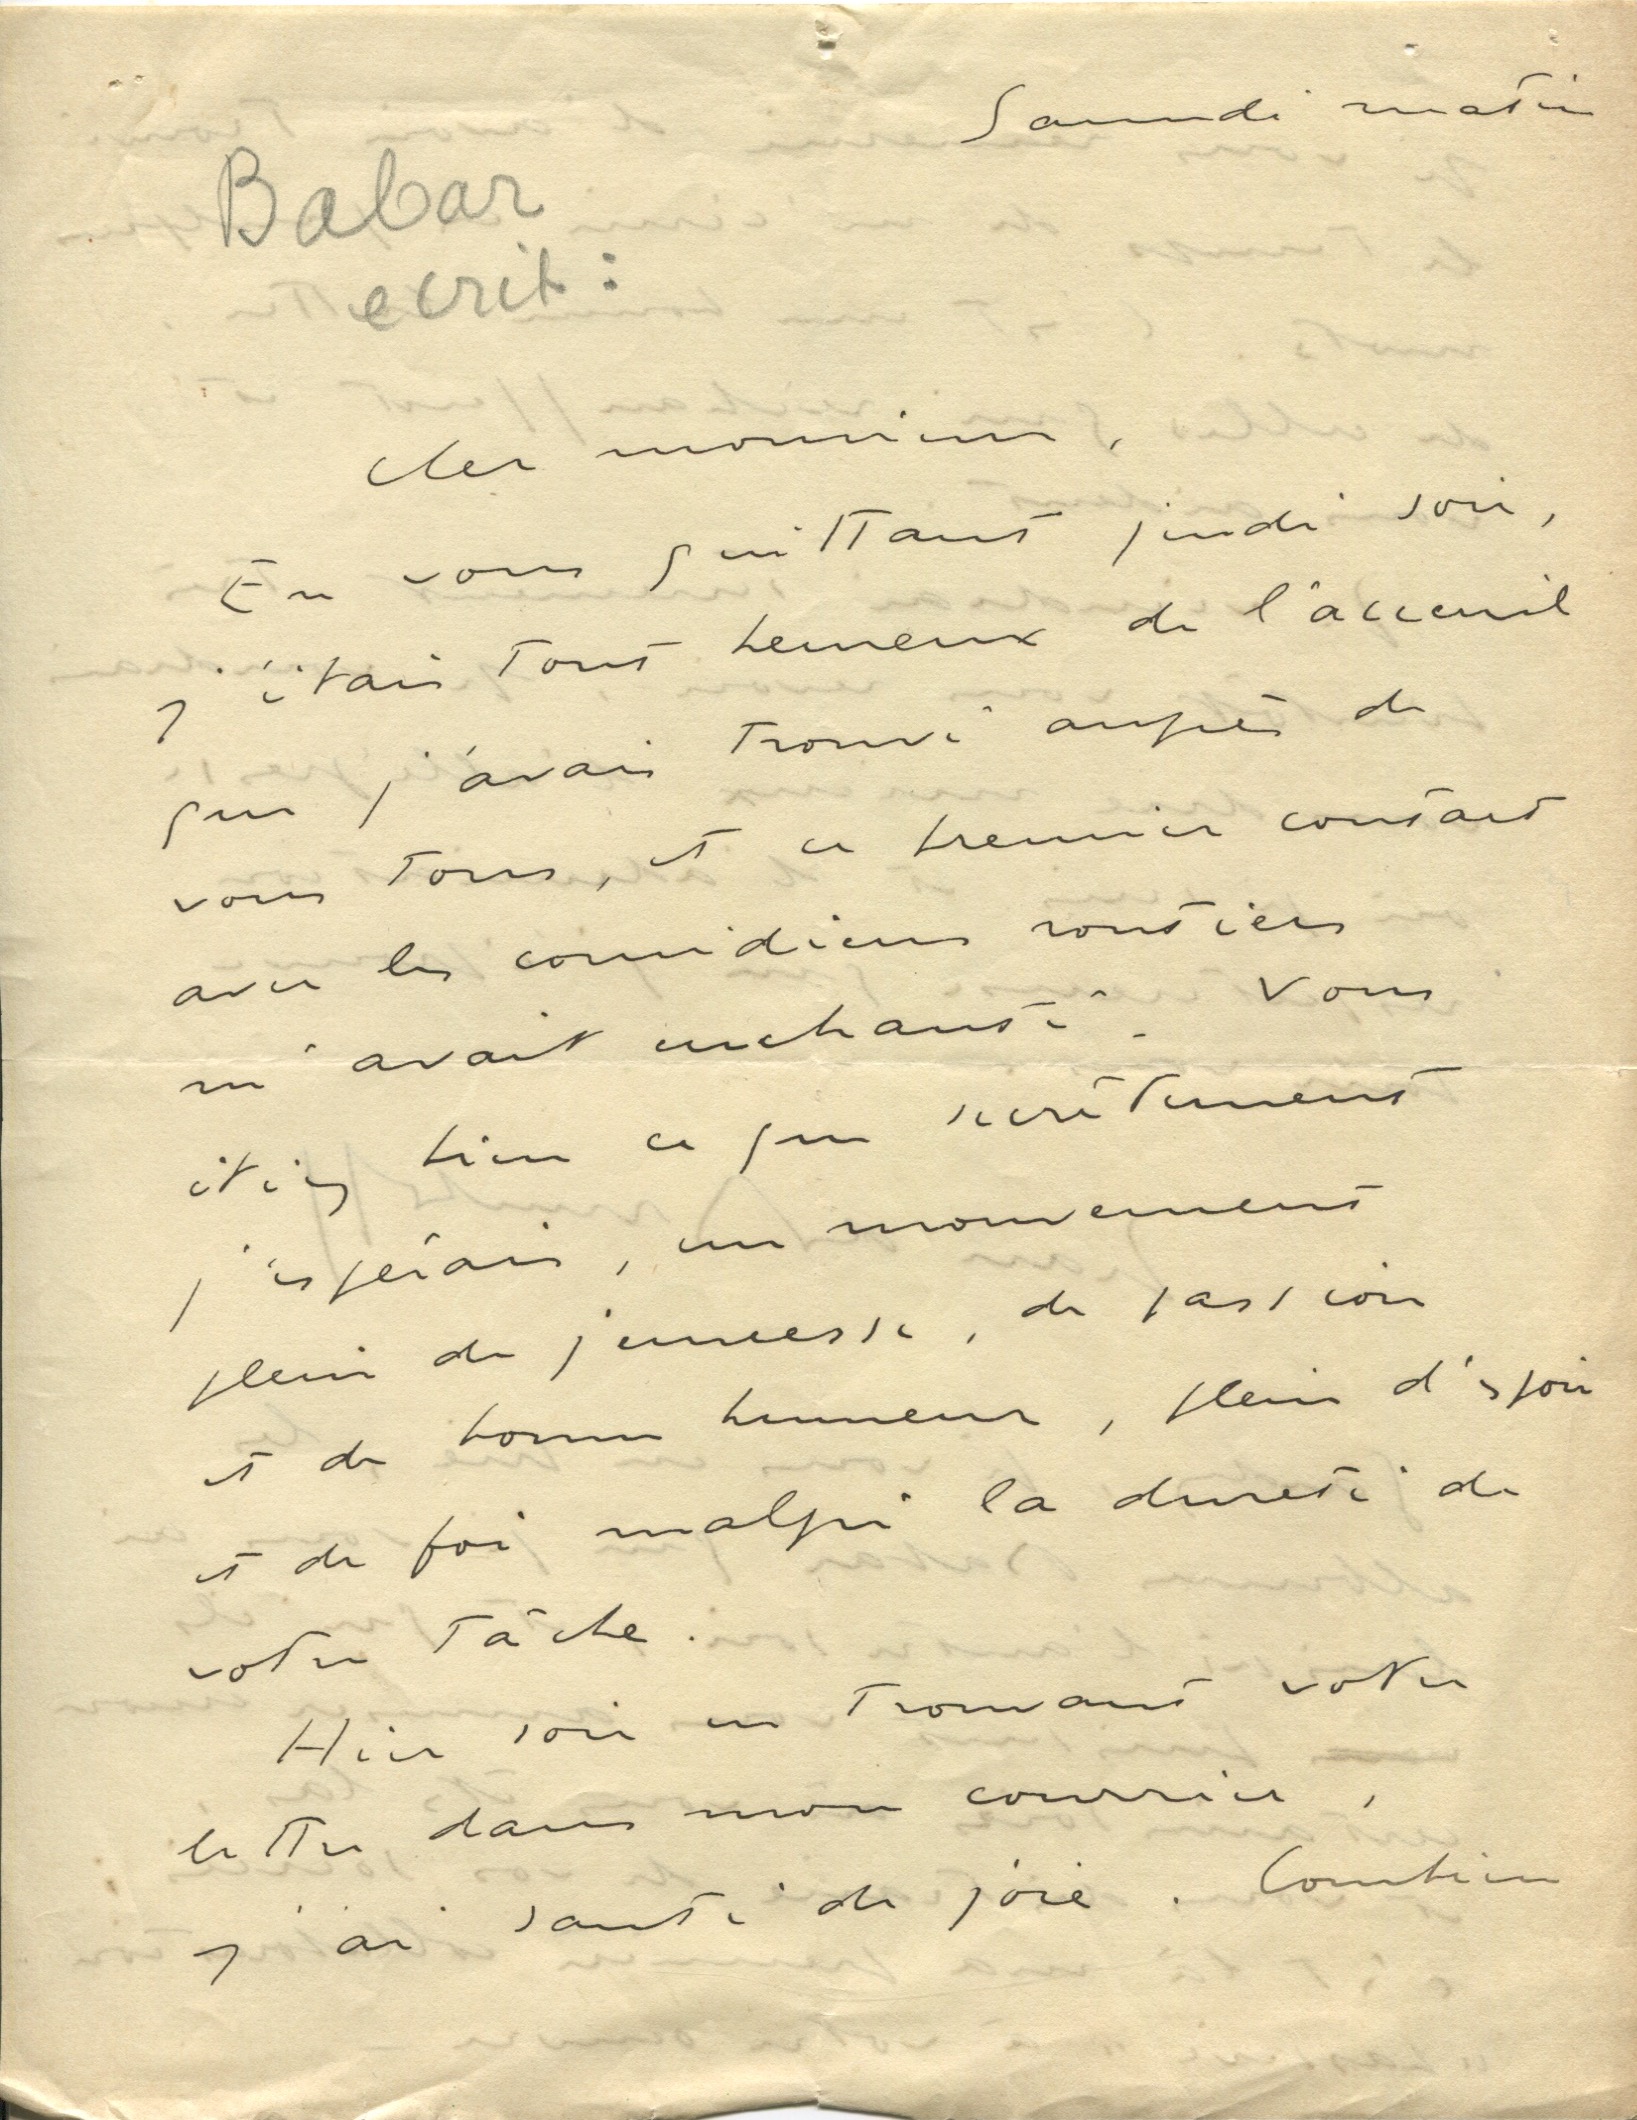 Samedi matin
Babar
ecrit :
Cher monsieur,
En vous quittant jeudi soir,
j'étais tout heureux de l'accueil
que j'avais trouvé auprès de
vous tous, et ce premier contact
avec les comédiens routiers
m'avait enchanté. Vous
étiez bien ce que secrètement
j'espérais, un mouvement
plein de jeunesse, de passion
et de bonne humeur, plein d'espoir
et de foi malgré la dureté de
votre tâche.
Hier soir en trouvant votre
lettre dans mon courrier,
j'ai sauté de joie. Combien